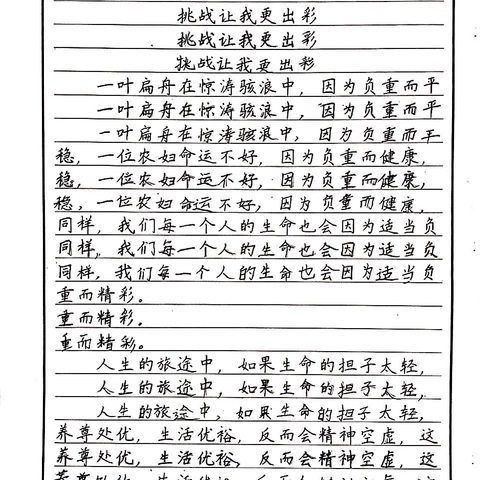 挑战让我更出彩
挑战让我更出彩
挑战让我更出彩
一叶扁舟在惊涛骇浪中，因为负重而平
一叶扁舟在惊涛骇浪中，因为负重而平
一叶扁舟在惊涛骇浪中，因为负重而平
稳，一位农妇命运不好，因为负重而健康，
稳，一位农妇命运不好，因为负重而健康，
稳，一位农妇命运不好，因为负重而健康，
同样，我们每一个人的生命也会因为适当负
同样，我们每一个人的生命也会因为适当负
同样，我们每一个人的生命也会因为适当负
重而精彩。
重而精彩。
重而精彩。
人生的旅途中，如果生命的担子太轻，
人生的旅途中，如果生命的担子太轻，
人生的旅途中，如果生命的担子太轻，
养尊处优，生活优裕，反而会精神空虚，这
养尊处优，生活优裕，反而会精神空虚，这